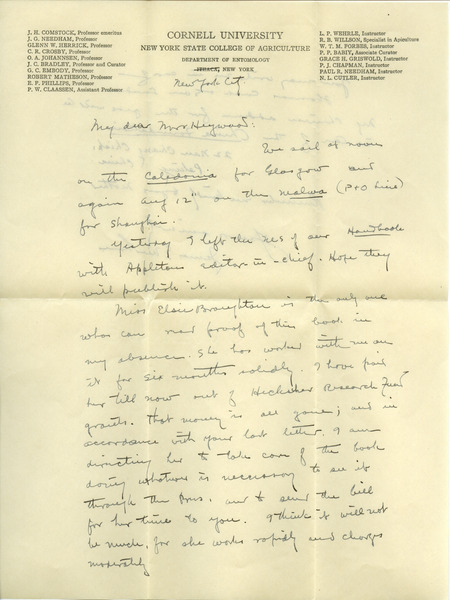 J. H. COMSTOCK, Professor emeritus
J. G. NEEDHAM, Professor
GLENN W. HERRICK, Professor
C. R. CROSBY, Professor
O. A. JOHANNSEN, Professor
J. C. BRADLEY, Professor and Curator
G. C. EMBODY, Professor
ROBERT MATHESON, Professor
E. F. PHILLIPS, Professor
P. W. CLAASSEN, Assistant Professor
CORNELL UNIVERSITY
NEW YORK STATE COLLEGE OF AGRICULTURE
DEPARTMENT OF ENTOMOLOGY
ITHACA, NEW YORK
L. P. WEHRLE, Instructor
R. B. WILLSON, Specialist in Apiculture
W. T. M. FORBES, Instructor
P. P. BABIY, Associate Curator
GRACE H. GRISWOLD, Instructor
P. J. CHAPMAN, Instructor
PAUL R. NEEDHAM, Instructor
N. L. CUTLER, Instructor
New York City
My dear Mrs. Heywood:
We sail at noon
on the Caledonia for Glasgow and
again Aug 12" on the Malwa (P+O Line)
for Shanghai.
Yesterday I left the MS of our Handbook
with Appletons editor-in-chief. Hope they
will publish it.
Miss Clair Broughton is the only one
who can read proof of this book in
my absence. She has worked with me on
it for six months solidly. I have paid
her till now out of Heckscher Research Fund
grants. That money is all gone; and in
accordance with your last letter, I am
directing her to take care of the book
doing whatever is necessary to see it
through the Press, and to send the bill
for her time to you. I think it will not
be much, for she works rapidly and charges
moderately